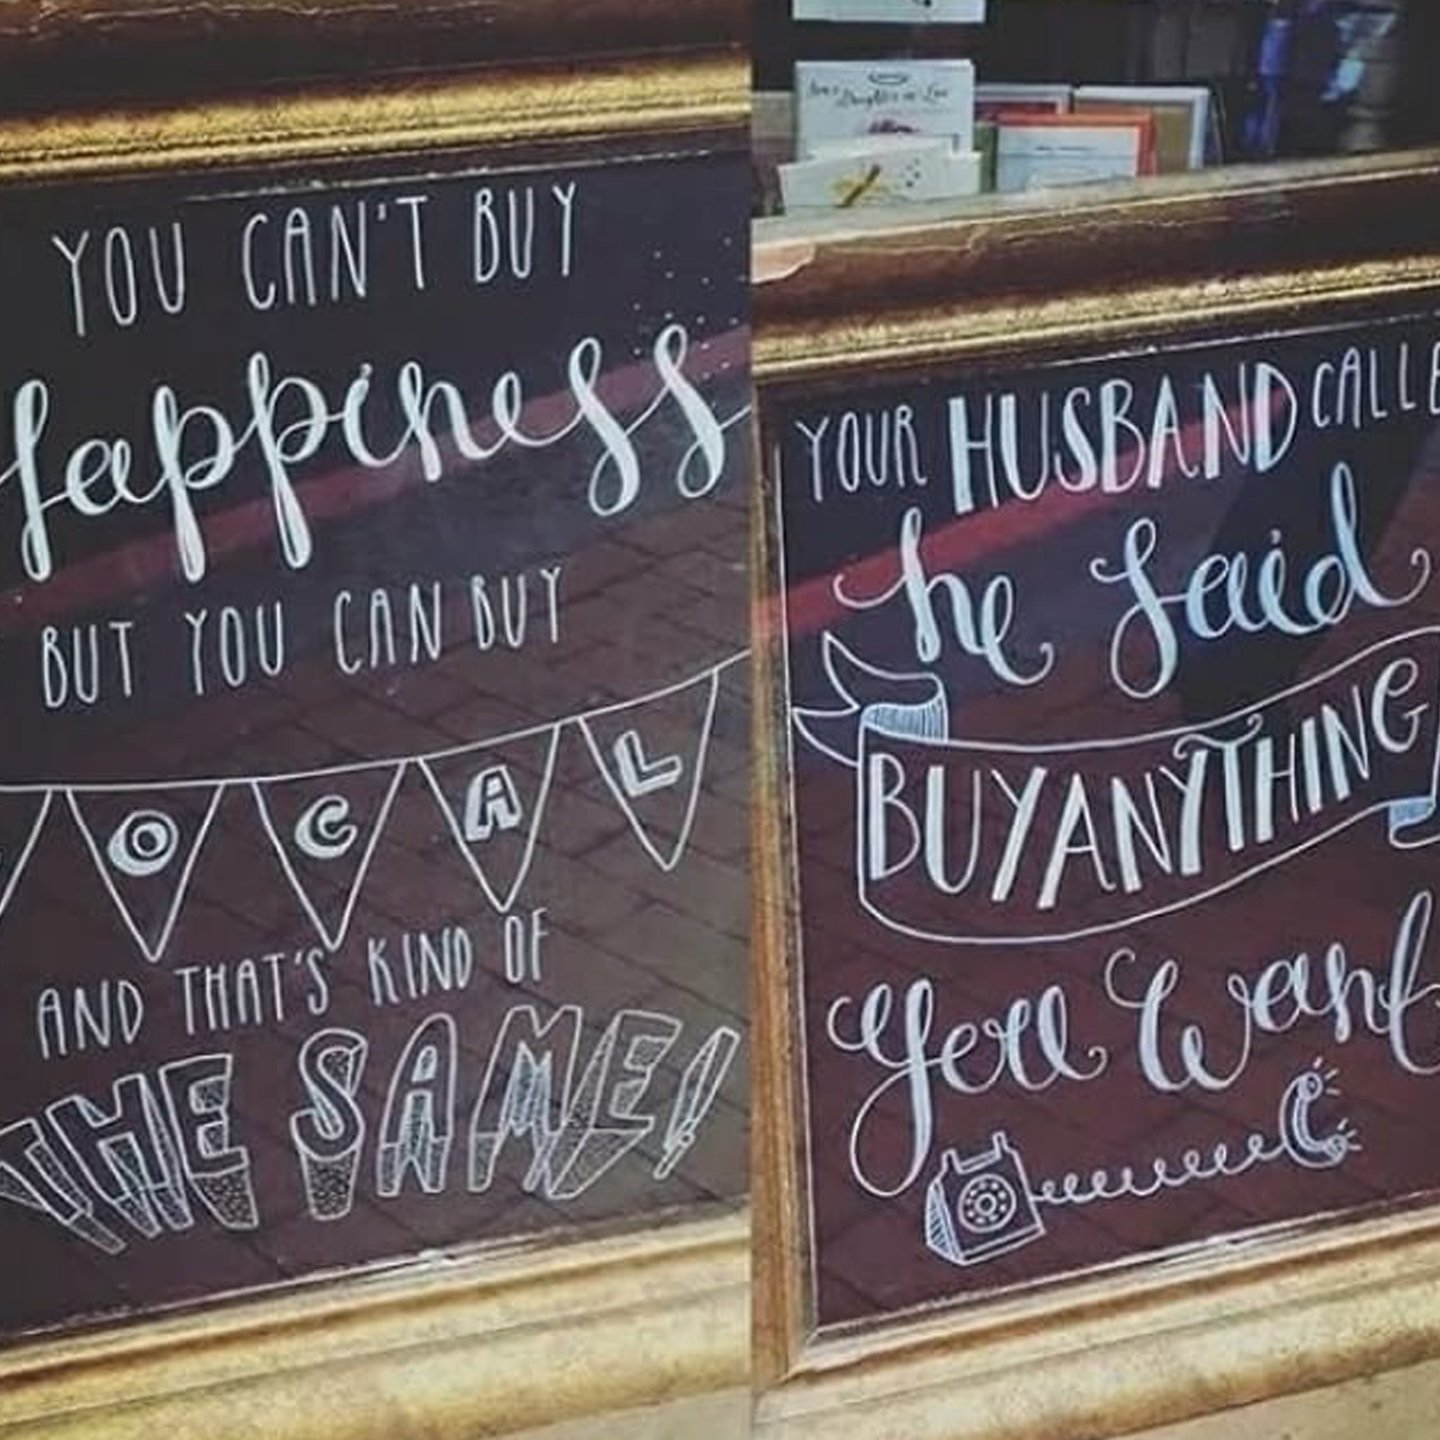 YOU CAN'T BUY
happiness
BUT YOU CAN BUY
OCAL
AND THAT'S KIND OF
THE SAME!
YOUR HUSBAND CALLE
he said
BUY ANYTHING
you want